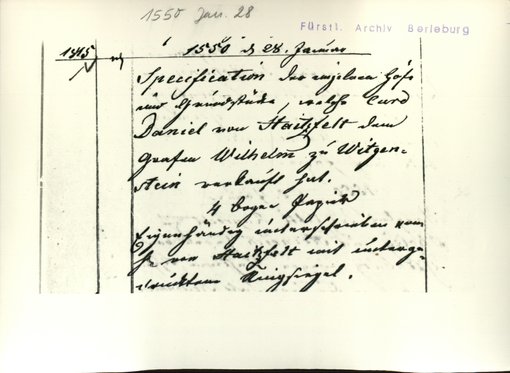 1550 Jan. 28
Fürstl. Archiv Berleburg
1345 1550 d 28. Januar
Specification der einzelnen Höfe
und Grundstücke, welche Curd
Daniel von Hatzfelt dem
Grafen Wilhelm zu Witgen-
stein verkauft hat.
4 Bogen Papier
Eigenhändig unterschrieben vom
v. Hatzfelt mit unterge-
drucktem Ringsiegel.